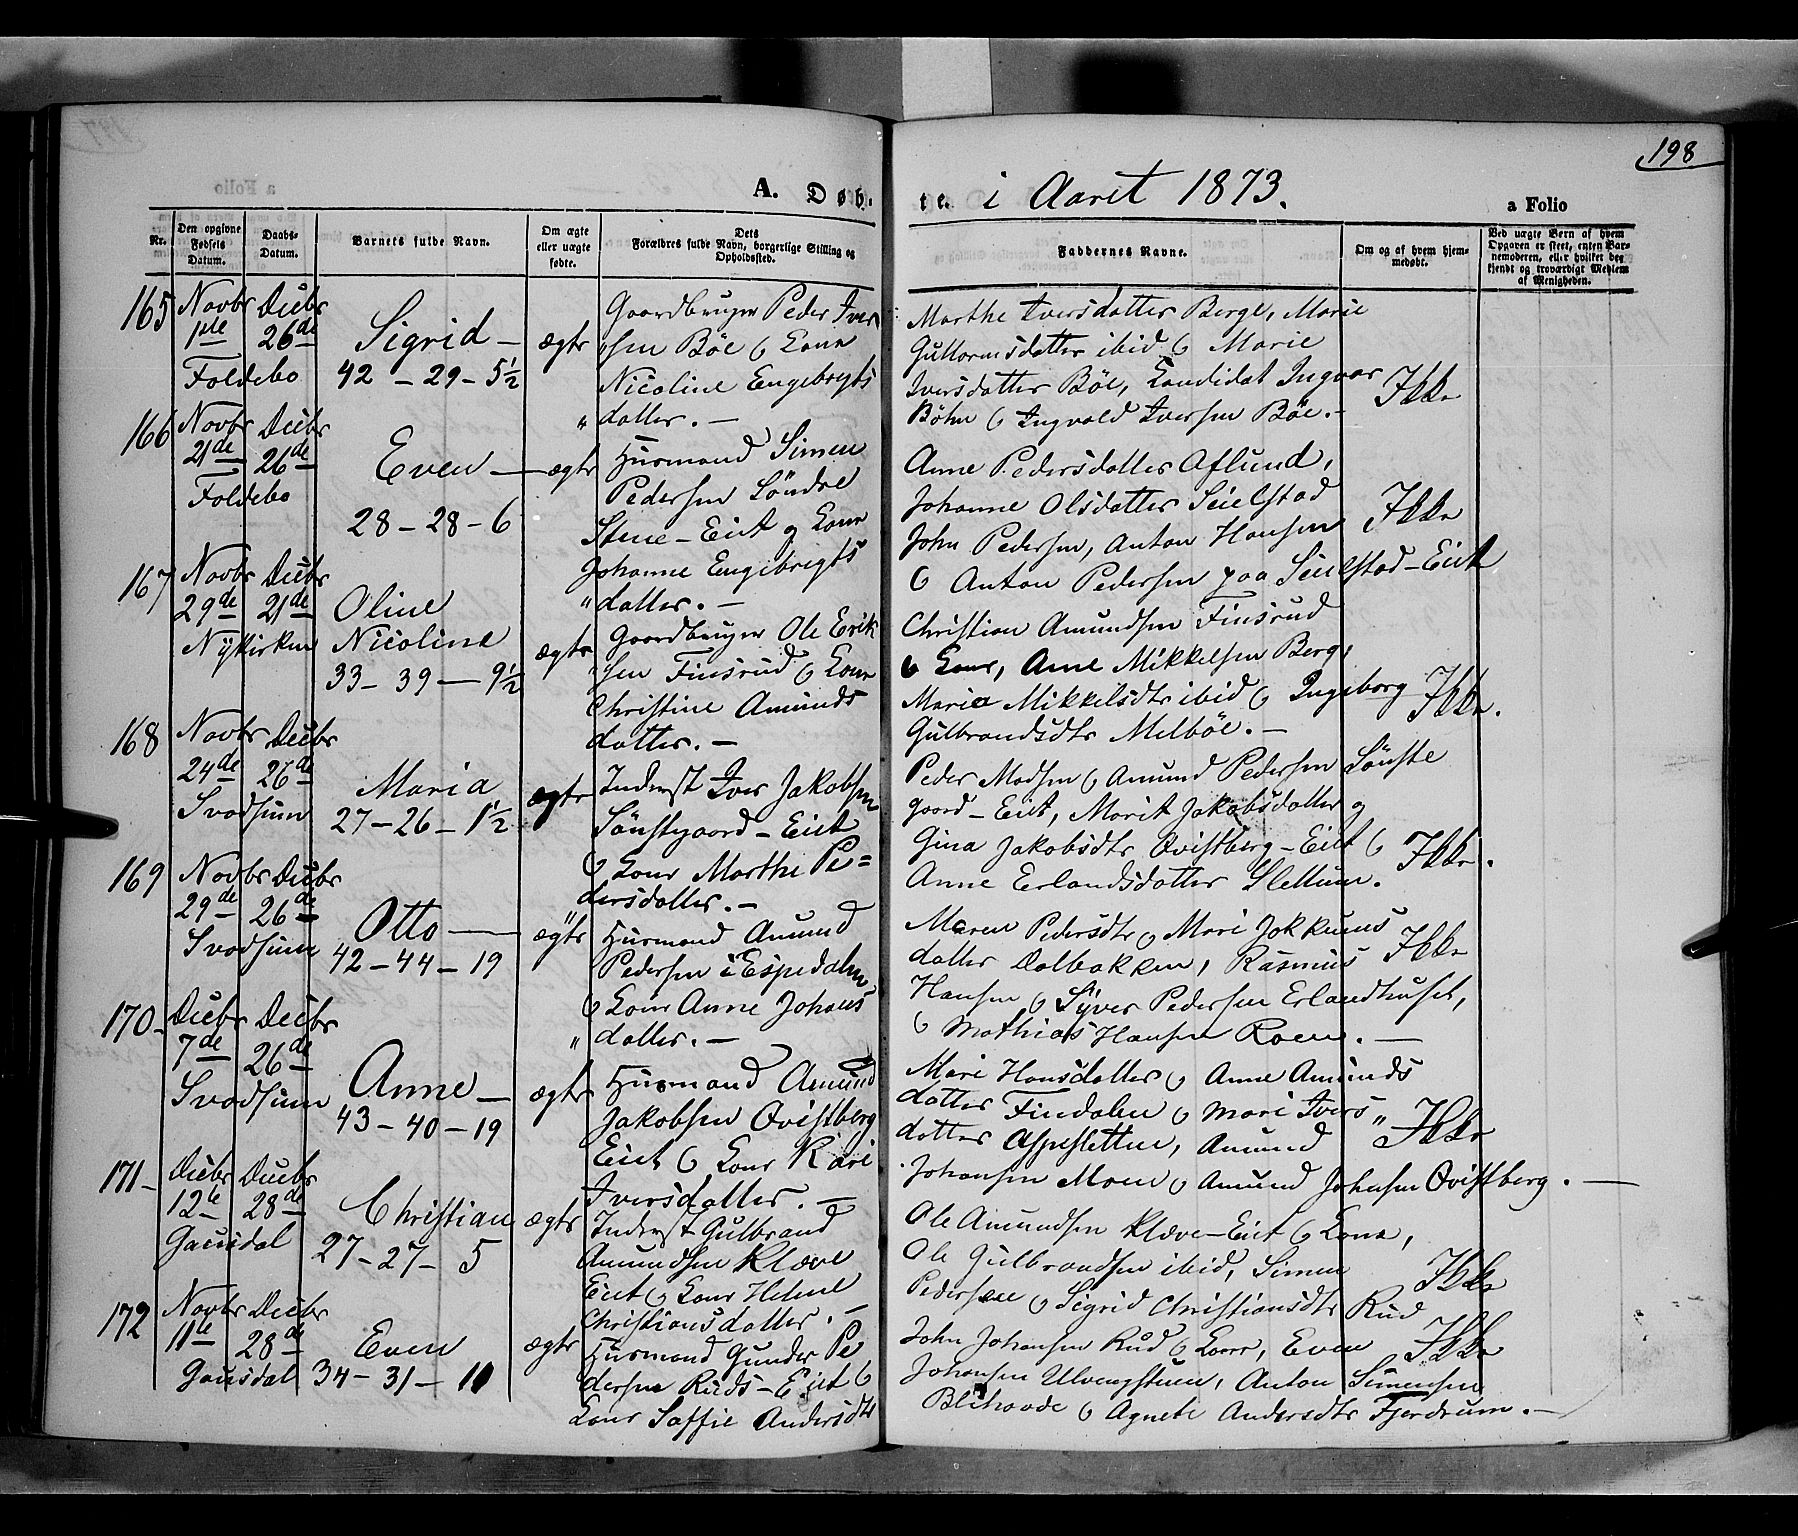 198
A. Døb-
te. i Aaret 1873.
a Folio
Nr.
Den opgivne Fødsels Datum.
Daabs-Datum.
Barnets fulde Navn.
Om ægte eller uægte fødte.
Dets Forældres fulde Navn, borgerlige Stilling og Opholdssted.
Faddernes Navne.
Om og af hvem hjemmedøbt.
Ved uægte Børn af hvem Opgaven er skeet, enten Barnemoderen, eller hvilket bekjendt og troværdigt Medlem af Menigheden.
165
Novbr 1ste
Decbr 26de
Foldebo
Sigrid
42 - 29 - 5½
ægte
Gaardbruger Peder Iver
"sen Böe & Kone
Nicoline Engebrigts
"datter. -
Marthe Iversdatter Berge, Marie
Guttormsdatter ibid & Marie
Iversdatter Böe, Kandidat Ingvar
Böhn & Ingvald Iversen Böe. -
Ikke
166
Novbr 21de
Decbr 26de
Foldebo
Even
28 - 28 - 6
ægte
Husmand Simen
Pedersen Söndre
Stene-Eiet og Kone
Johanne Engebrigts
"datter. -
Anne Pedersdatter Aflund,
Johanne Olsdatter Seielstad
John Pedersen, Anton Hansen
& Anton Pedersen paa Seielstad-Eiet
Ikke
167
Novbr 29de
Decbr 21de
Nykirken
Oline
Nicoline
33 - 39 - 9½
ægte
Gaardbruger Ole Erik
"sen Finsrud & Kone
Christine Amunds
datter. -
Christian Amundsen Finsrud
& Kone, Arne Mikkelsen Berg,
Maria Mikkelsdtr ibid & Ingeborg
Gulbrandsdtr Melböe. -
Ikke.
168
Novbr 24de
Decbr 26de
Svadsum
Maria
27 - 26 - 1½
ægte
Inderst Iver Jakobsen
Sönstegaard-Eiet
& Kone Marthe Pe=
dersdatter. -
Peder Madsen & Amund Pedersen Sönste
gaard-Eiet, Marit Jakobsdatter og
Gina Jakobsdtr Qvistberg-Eiet &
Anne Erlandsdatter Slettum.
Ikke.
169
Novbr 29de
Decbr 26de
Svadsum
Otto
42 - 44 - 19
ægte
Husmand Amund
Pedersen i Espedalen
& Kone Anne Johans
"datter. -
Maren Pedersdtr & Mari Jokkums
datter Dalbakken, Rasmus
Hansen & Syver Pedersen Erlandhuset,
& Mathias Hansen Roen. -
Ikke
170
Decbr 7de
Decbr 26de
Svadsum
Anne
43 - 40 - 19
ægte
Husmand Amund
Jakobsen Qvistberg
Eiet & Kone Kari
Iversdatter. -
Mari Hansdatter & Anne Amunds
datter Findalen & Mari Ivers"
datter Aspesletten, Amund
Johansen Moen & Amund Johnsen Qvistberg. -
Ikke
171
Decbr 12te
Decbr 28de
Gausdal
Christian
27 - 27 - 5
ægte
Inderst Gulbrand
Amundsen Klæve
Eiet & Kone Helene
Christiansdatter. -
Ole Amundsen Klæve-Eiet & Kone,
Ole Gulbrandsen ibid, Simen
Pedersen & Sigrid Christiansdtr Rud
Ikke
172
Novbr 11te
Decbr 28de
Gausdal
Even
34 - 31 - 10
ægte
Husmand Gunder Pe
dersen Ruds-Eiet &
Kone Saffie Andersdtr
John Johansen Rud & Kone, Even
Johansen Ulvengstuen, Anton Simensen
Blihovde & Agnete Andersdtr Fjerdrum. -
Ikke